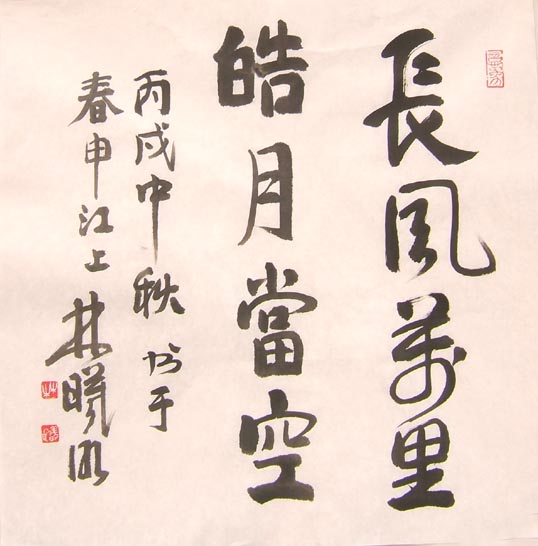 長風萬里
皓月當空
丙戌中秋书于
春申江上林曦明